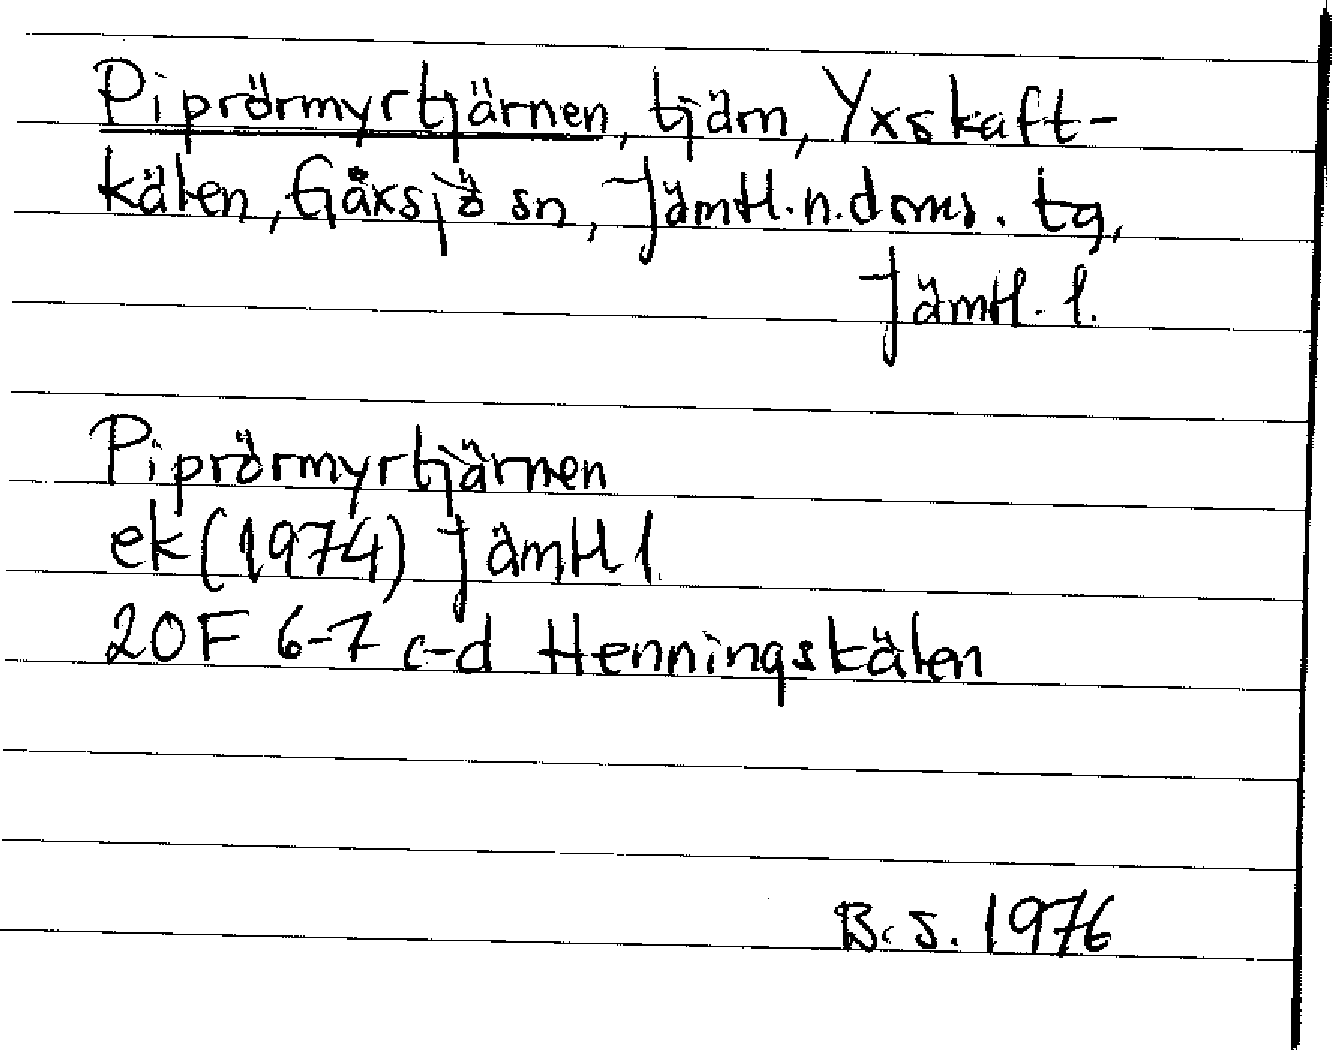 Piprörmyrtjärnen, tjärn, Yxskaft-
kälen, Gåxsjö sn, Jämtl. n. doms. tg,
Jämtl. l.
Piprörmyrtjärnen
ek (1974) Jämtl l.
20F 6-7 c-d Henningskälen
B.S. 1976